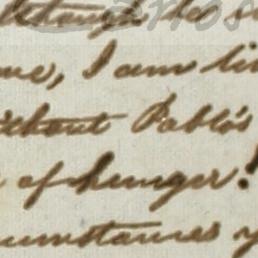 although he s
me, I am li
without Pablo's
of hunger!
cumstances y